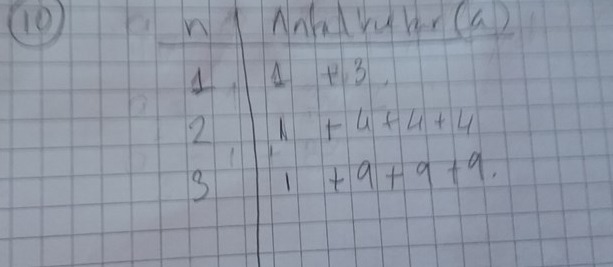 10
n Antal rutor (a)
1 1 + 3
2 1 + 4 + 4 + 4
3 1 + 9 + 9 + 9.